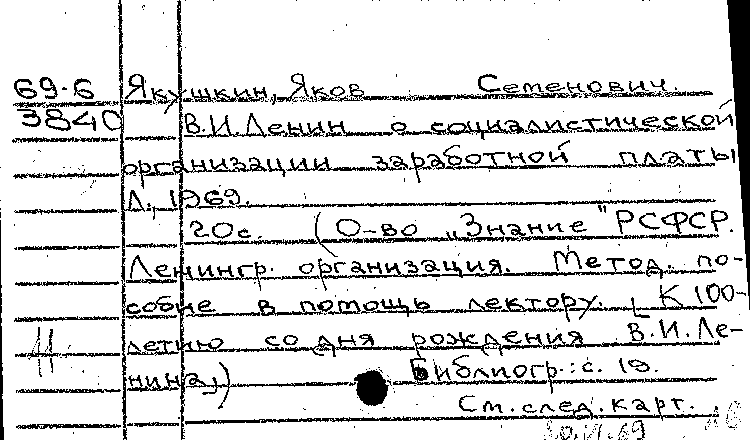 69-6 Якушкин, Яков Семенович.
3840 В.И.Ленин о социалистической
организации заработной платы
Л., 1969.
20с. (О-во „Знание" РСФСР.
Ленингр. организация. Метод. по-
собие в помощь лектору. [К 100-
летию со дня рождения В.И.Ле-
нина])
Библиогр.: с. 19.
См. след. карт.